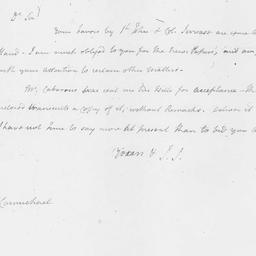 Dr Sir
Your favors by Mr. & Col. are come to
Hand. I am much obliged to you for the News Papers, and am
with your attention to certain other Matters.
Mr. Cabarrus has sent me the Bills for acceptance
to transmit a copy of it, without Remarks.
I have not time to say more at present than to bid you
Yours & J. J.
Carmichael